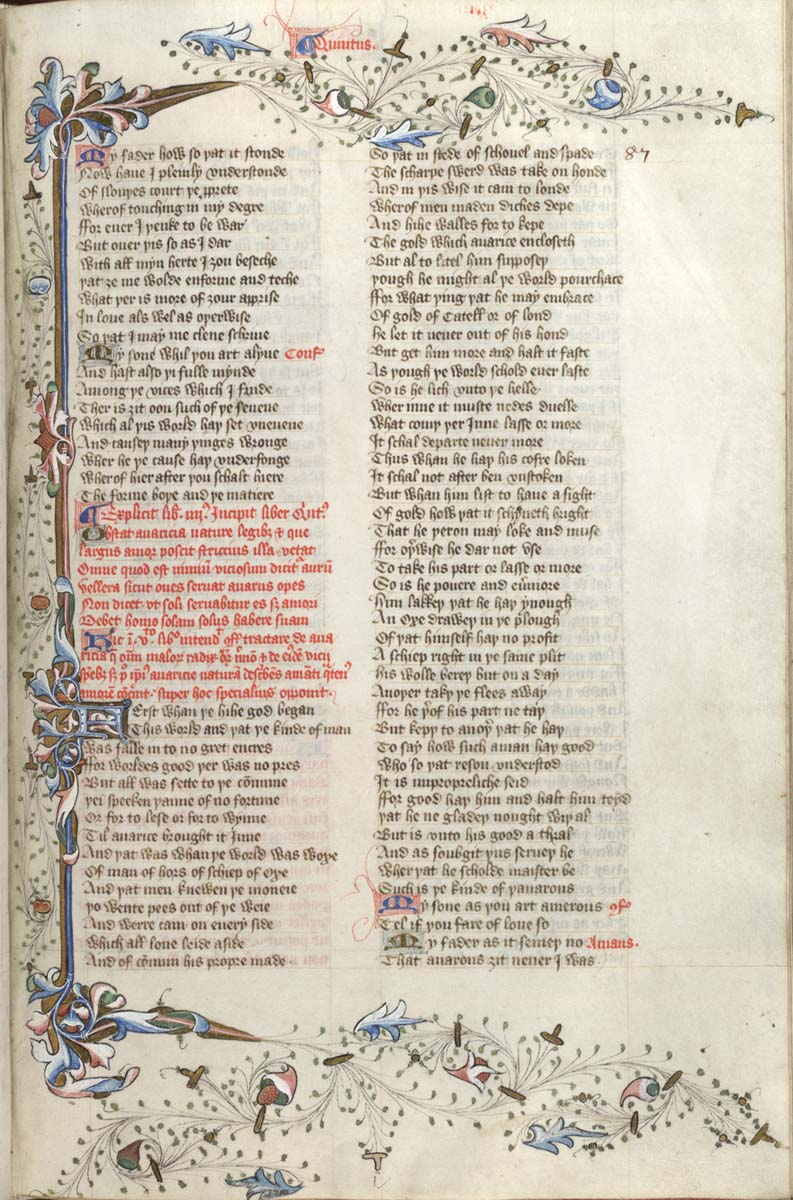 Quintus.
My fader how so yat it stonde
Now haue I pleinly vnderstonde
Of slouyes court ye pprete
Wherof touching in my degre
ffor euer I yenke to be war
But ouer yis so as I dar
With all myn herte I zou beseche
yat ze me wolde enforme and teche
What yer is more of zour apprise
In loue als wel as oyerwise
So yat I may me clene schriue
My sone whil you art alyue Conf
And hast also yi fulle mynde
Among ye vices which I finde
Ther is zit oon such of ye seuene
Which al yis world hay set vneuene
And causey many yinges wronge
Wher he ye cause hay vnderfonge
Wherof hier after you schalt hiere
The forme boye and ye matiere
Explicit lib. iiij. Incipit liber Quint.
Obstat auaricia nature legibus & que
largus amor poscit strictius illa vetat
Omne quod est nimium viciosum dicitur aurum
Vellera sicut oues seruat auarus opes
Non dicet vt soli seruabitur es sz amori
Debet homo solam solus habere suam
Hic in vto. libro intendit Conf tractare de aua
ricia
Ferst whan ye hihe god began
This world and yat ye kinde of man
Was falle in to no gret encres
ffor worldes good yer was no pres
But all was sette to ye comune
yei speeken yanne of no fortune
Or for to lese or for to wynne
Til auarice brought it Inne
And yat was whan ye world was woxe
Of man of hors of schiep of oxe
And yat men knewen ye moneie
yo wente pees out of ye weie
And werre cam on euery side
Which all loue leide aside
And of comun his propre made.
So yat in stede of schouel and spade
87
The scharpe swerd was take on honde
And in yis wise it cam to londe
Wherof men maden diches depe
And hihe walles for to kepe
The gold which auarice encloseth
But al to litel him supposey
yough he might al ye world pourchace
ffor what ying yat he may embrace
Of gold of Catell or of lond
he let it neuer out of his hond
But get him more and halt it faste
As yough ye world schold euer laste
So is he lich vnto ye helle
Wher inne it muste nedes duelle
What comy yer Inne lasse or more
It schal departe neuer more
Thus whan he hay his cofre loken
It schal not after ben vnstoken
But whan him list to haue a sight
Of gold how yat it schyneth bright
That he yeron may loke and muse
ffor oyrwise he dar not vse
To take his part or lasse or more
So is he pouere and euermore
him lakkey yat he hay ynough
An oxe drawey in ye plough
Of yat himself hay no profit
A schiep right in ye same plit
his wolle berey but on a day
Anoyer taky ye flees away
ffor he yrof his part ne tay
But kepy to anoyr yat he hay
To say how such a man hay good
Who so yat reson vnderstod
It is impropreliche seid
ffor good hay him and halt him teyd
yat he ne gladey nought wiy al
But is vnto his good a thral
And as soubgit yus seruey he
Wher yat he scholde maister be
Such is ye kinde of yauarous
My sone as you art amerous
Tel if you fare of loue so
My fader as it semey no Amans.
That auarous zit neuer I was